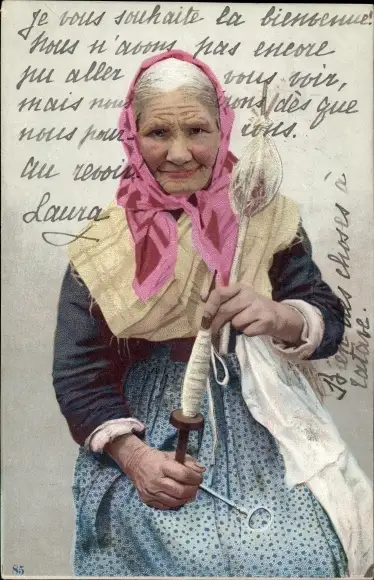 Je vous souhaite la bienvenue!
Nous n'avons pas encore
pu aller vous voir,
mais nous irons dès que
nous pourrons.
Au revoir
Laura
Bien des choses à
85